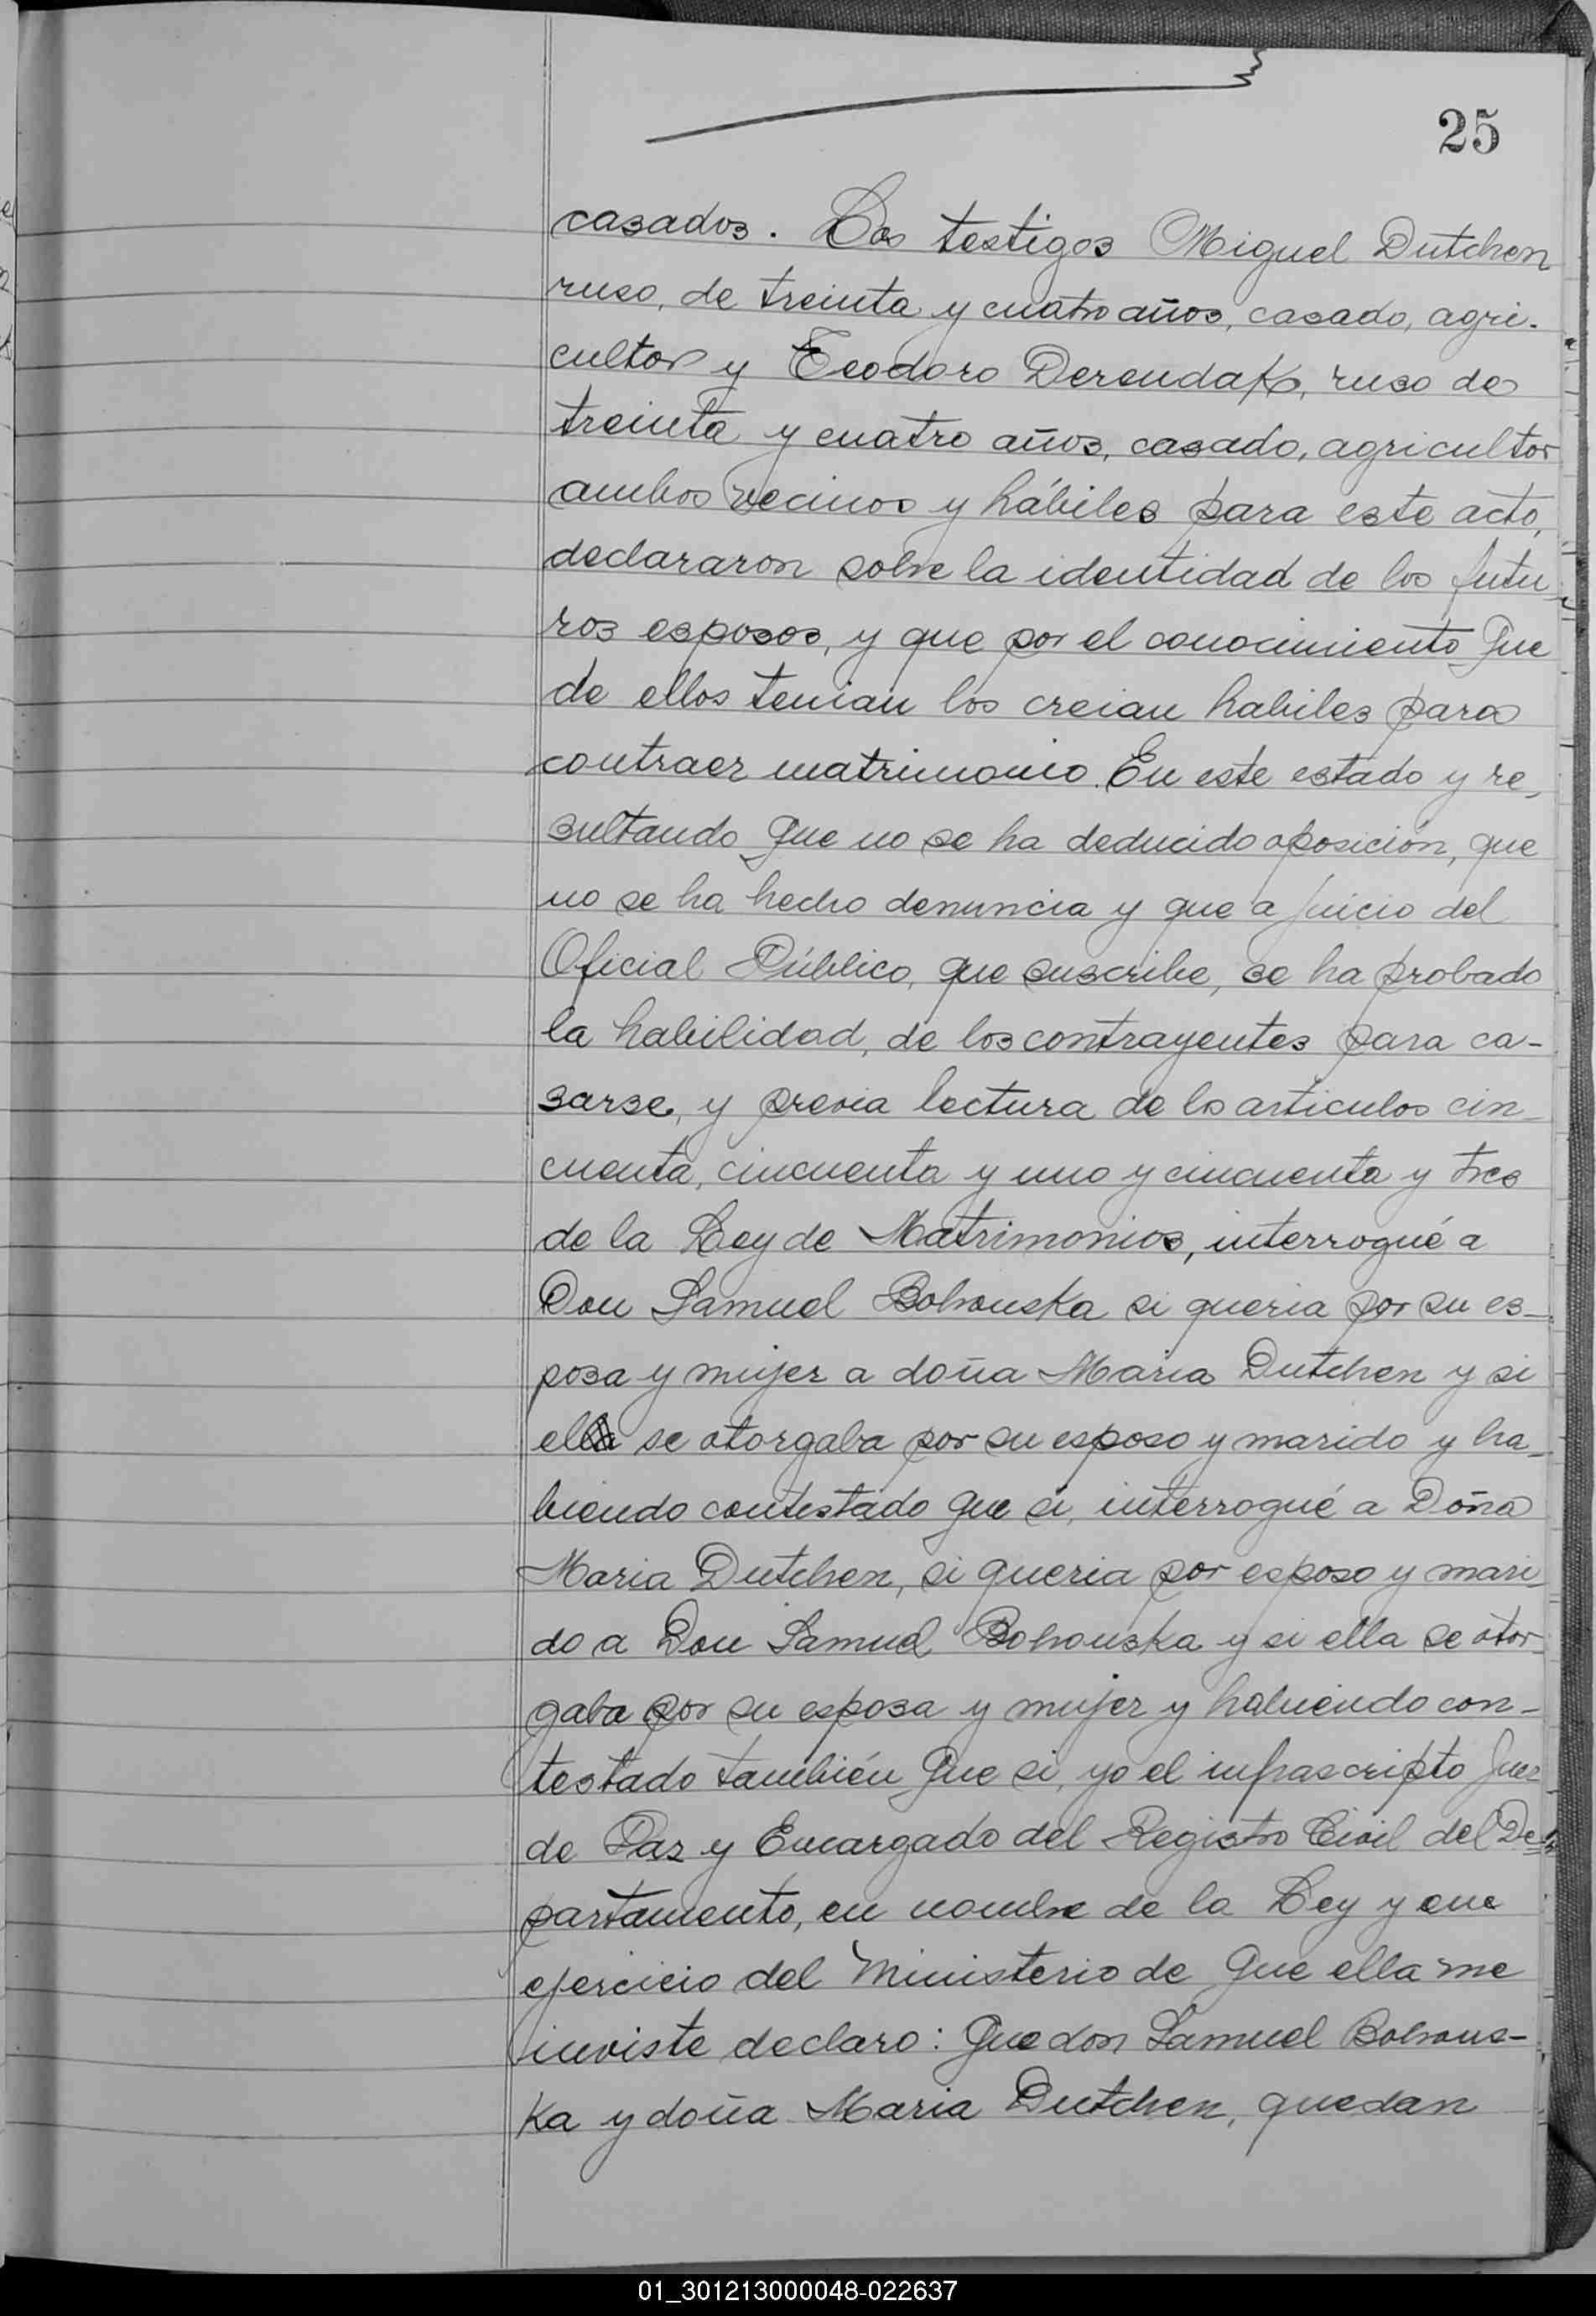 25
casados. Los testigos Miguel Dutchen
ruso, de treinta y cuatro años, casado, agri-
cultor y Teodoro Derendak, ruso de
treinta y cuatro años, casado, agricultor
ambos vecinos y hábiles para este acto,
declararon sobre la identidad de los futu-
ros esposos, y que por el conocimiento que
de ellos tenian los creian habiles para
contraer matrimonio. En este estado y re-
sultando que no se ha deducido oposición, que
no se ha hecho denuncia y que a juicio del
Oficial Público, que suscribe, se ha probado
la habilidad, de los contrayentes para ca-
sarse, y previa lectura de los articulos cin-
cuenta, cincuenta y uno y cincuenta y tres
de la Ley de Matrimonios, interrogué a
Don Samuel Bohouska si queria por su es-
posa y mujer a doña Maria Dutchen y si
el se otorgaba por su esposo y marido y ha-
biendo contestado que si, interrogué a Doña
Maria Dutchen, si queria por esposo y mari-
do a Don Samuel Bohouska y si ella se otor-
gaba por su esposa y mujer y habiendo con-
testado también que si, yo el infrascripto Juez
de Paz y Encargado del Registro Civil del De-
partamento, en nombre de la Ley y en
ejercicio del Ministerio de que ella me
inviste declaro: Que don Samuel Bohous-
ka y doña Maria Dutchen, quedan
01_301213000048-022637